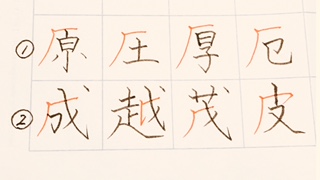 ① 原 圧 厚 厄
② 成 越 茂 皮